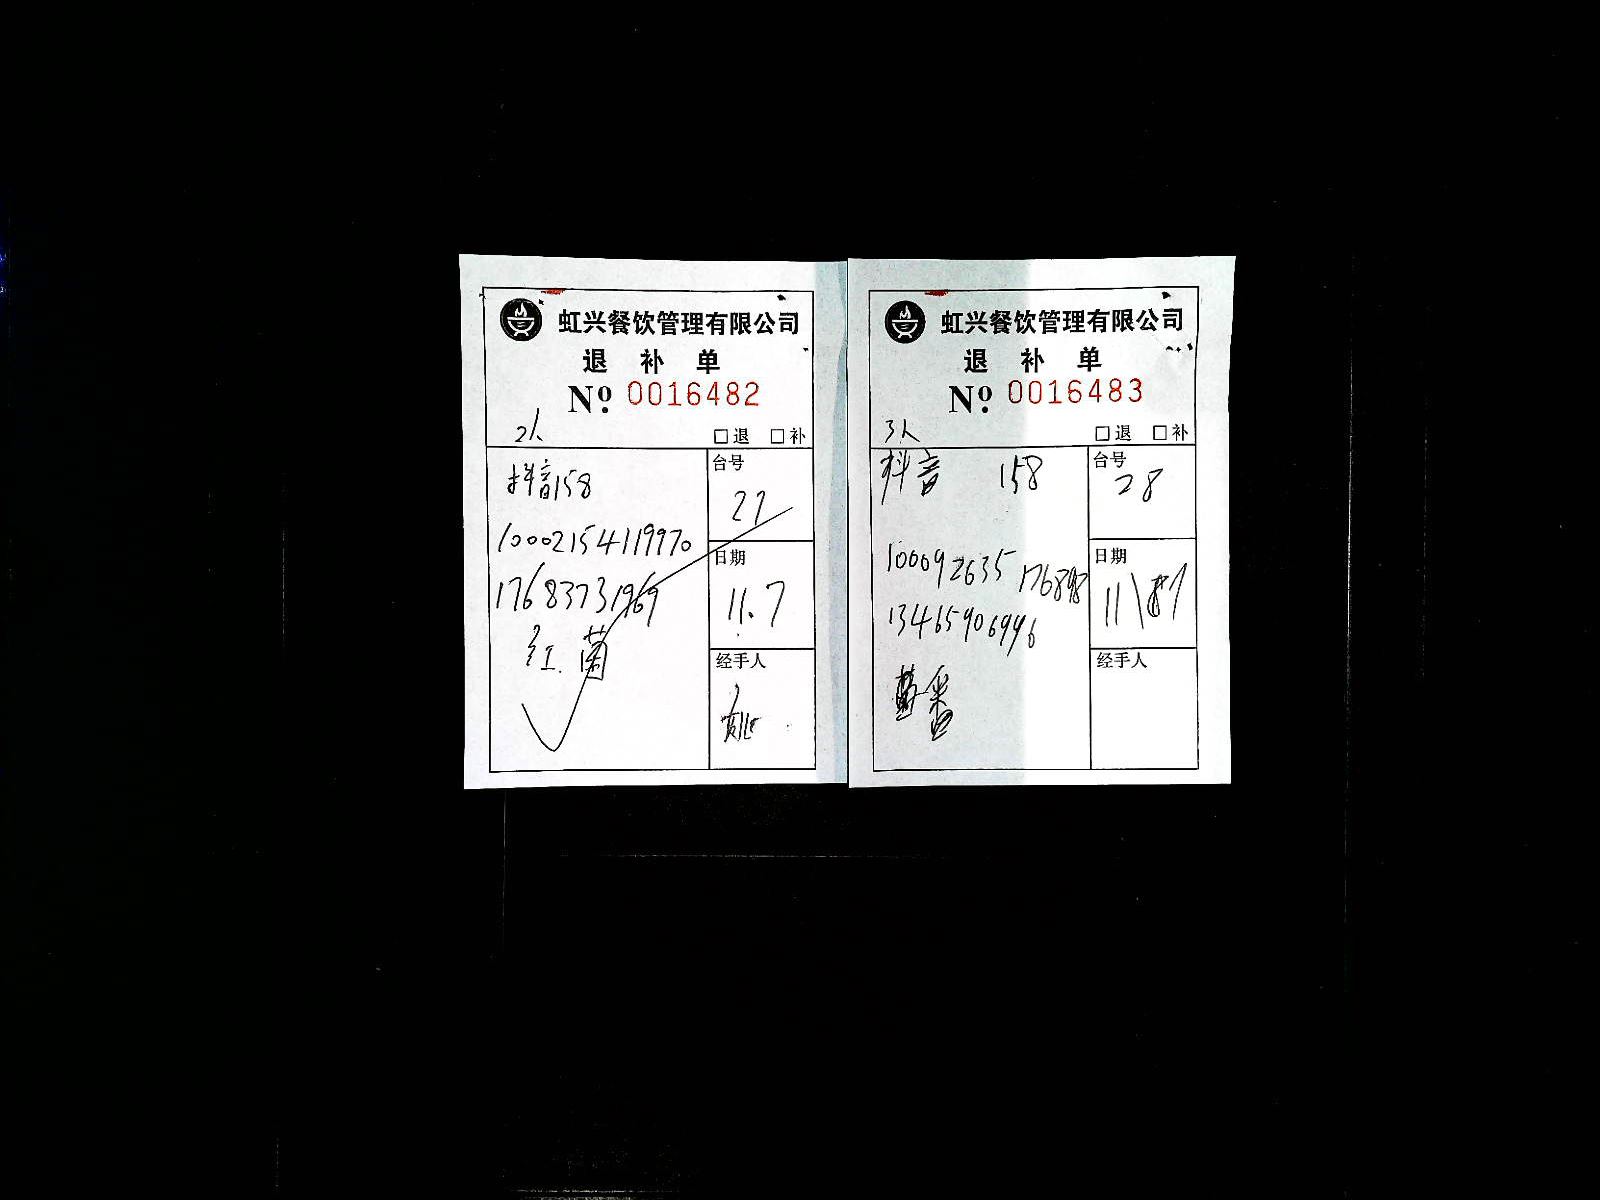 虹兴餐饮管理有限公司
退 补 单
No. 0016482
2人
□退 □补
抖音158
台号
27
1000215411９970
17683731969
日期
11.7
红 菌
经手人
虹兴餐饮管理有限公司
退 补 单
No. 0016483
3人
□退 □补
抖音 158
台号
28
100092635 176898
13465906996
日期
11\
经手人